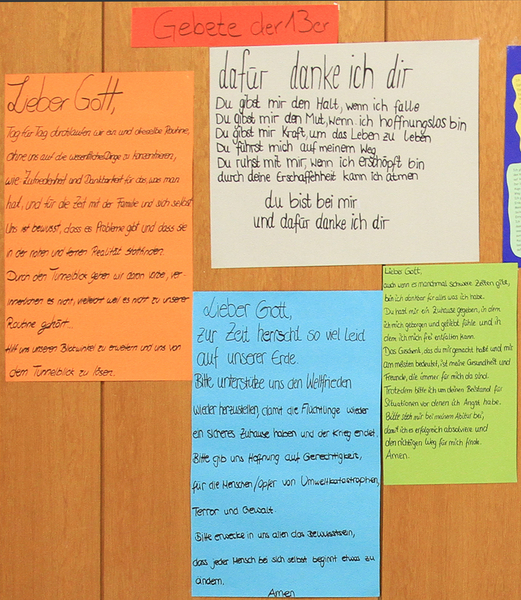 Gebete der 13er
Lieber Gott,
Tag für Tag durchlaufen wir ein und dieselbe Routine,
ohne uns auf die wesentlichen Dinge zu konzentrieren,
wie Zufriedenheit und Dankbarkeit für das, was man
hat, und für die Zeit mit der Familie und sich selbst.
Uns ist bewusst, dass es Probleme gibt und dass sie
in der nahen und fernen Realität stattfinden.
Durch den Tunnelblick gehen wir daran vorbei, ver-
innerlichen es nicht, vielleicht weil es nicht zu unserer
Routine gehört...
Hilf uns unseren Blickwinkel zu erweitern und uns von
dem Tunnelblick zu lösen.
dafür danke ich dir
Du gibst mir den Halt, wenn ich falle
Du gibst mir den Mut, wenn ich hoffnungslos bin
Du gibst mir Kraft, um das Leben zu leben
Du führst mich auf meinem Weg
Du ruhst mit mir, wenn ich erschöpft bin
durch deine Erschaffenheit kann ich atmen
du bist bei mir
und dafür danke ich dir
Lieber Gott,
zur Zeit herrscht so viel Leid
auf unserer Erde.
Bitte unterstütze uns den Weltfrieden
wieder herzustellen, damit die Flüchtlinge wieder
ein sicheres Zuhause haben und der Krieg endet.
Bitte gib uns Hoffnung auf Gerechtigkeit,
für die Menschen/Opfer von Umweltkatastrophen,
Terror und Gewalt.
Bitte erwecke in uns allen das Bewusstsein,
dass jeder Mensch bei sich selbst beginnt etwas zu
ändern.
Amen
Lieber Gott,
auch wenn es manchmal schwere Zeiten gibt,
bin ich dankbar für alles was ich habe.
Du hast mir ein Zuhause gegeben, in dem
ich mich geborgen und geliebt fühle und in
dem ich mich frei entfalten kann.
Das Geschenk, das du mir gemacht hast und mir
am meisten bedeutet, ist meine Gesundheit und
Freunde, die immer für mich da sind.
Trotzdem bitte ich um deinen Beistand für
Situationen vor denen ich Angst habe.
Bitte steh mir bei meinem Abitur bei,
damit ich es erfolgreich absolviere und
den richtigen Weg für mich finde.
Amen.